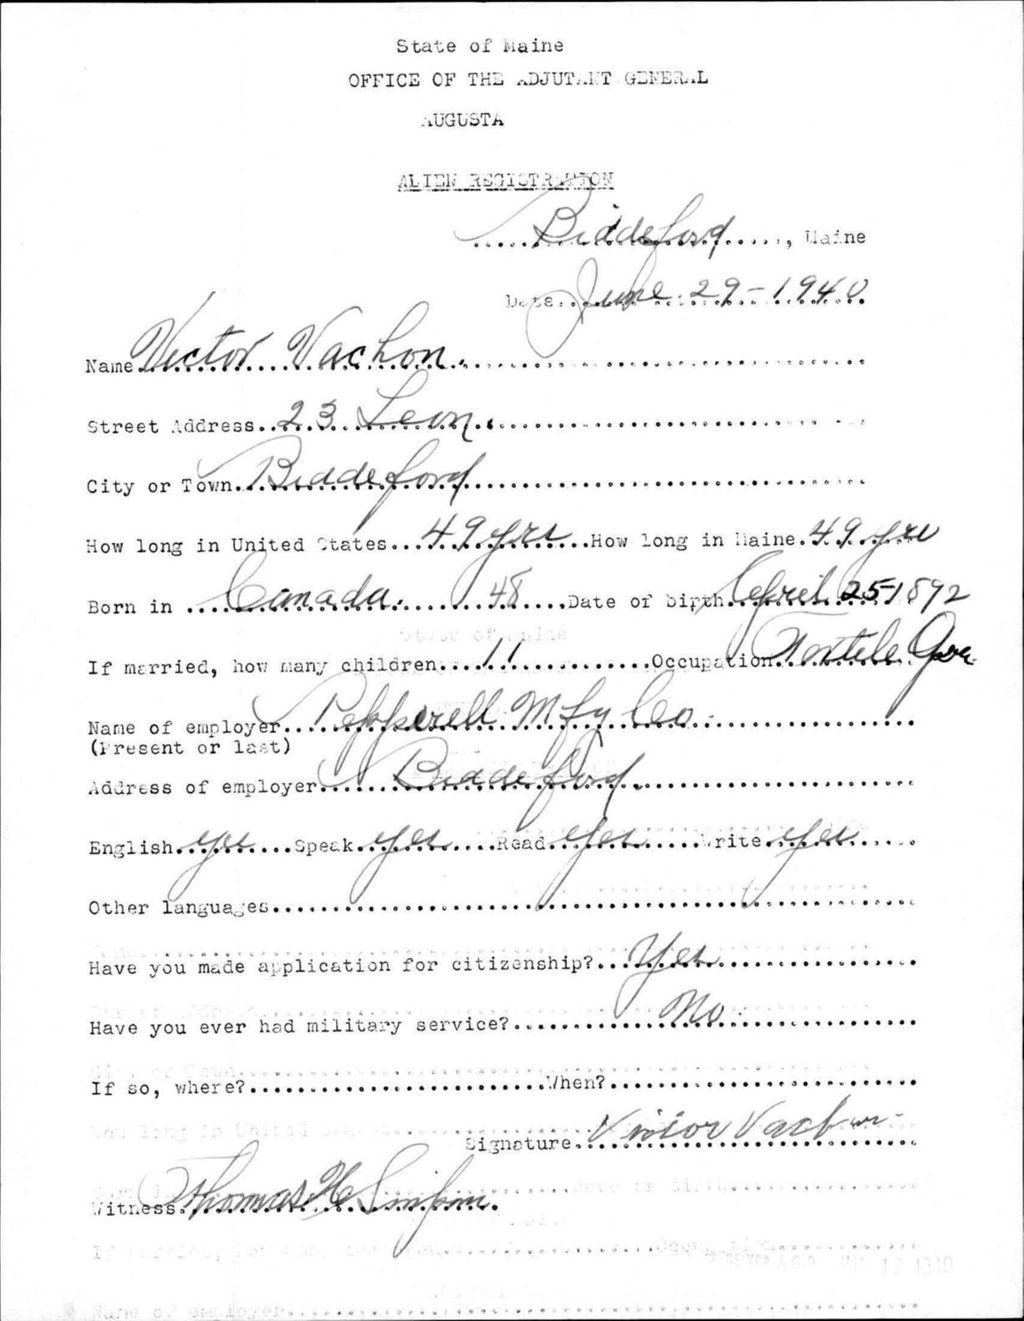 State of Maine
OFFICE OF THE ADJUTANT GENERAL
AUGUSTA
ALIEN REGISTRATION
Biddeford, Maine
Date June 29-1940
Name Victor Vachon.
Street Address 23 Leon.
City or Town Biddeford
How long in United States 49 yrs How long in Maine 49 yrs
Born in Canada. 48 Date of birth April 25-1892
If married, how many children 11 Occupation
Name of employer Pepperell Mfg Co.
(Present or last)
Address of employer Biddeford
English yes Speak yes Read yes Write yes
Other languages
Have you made application for citizenship? Yes
Have you ever had military service? No.
If so, where? When?
Signature Victor Vachon
Witness Thomas H